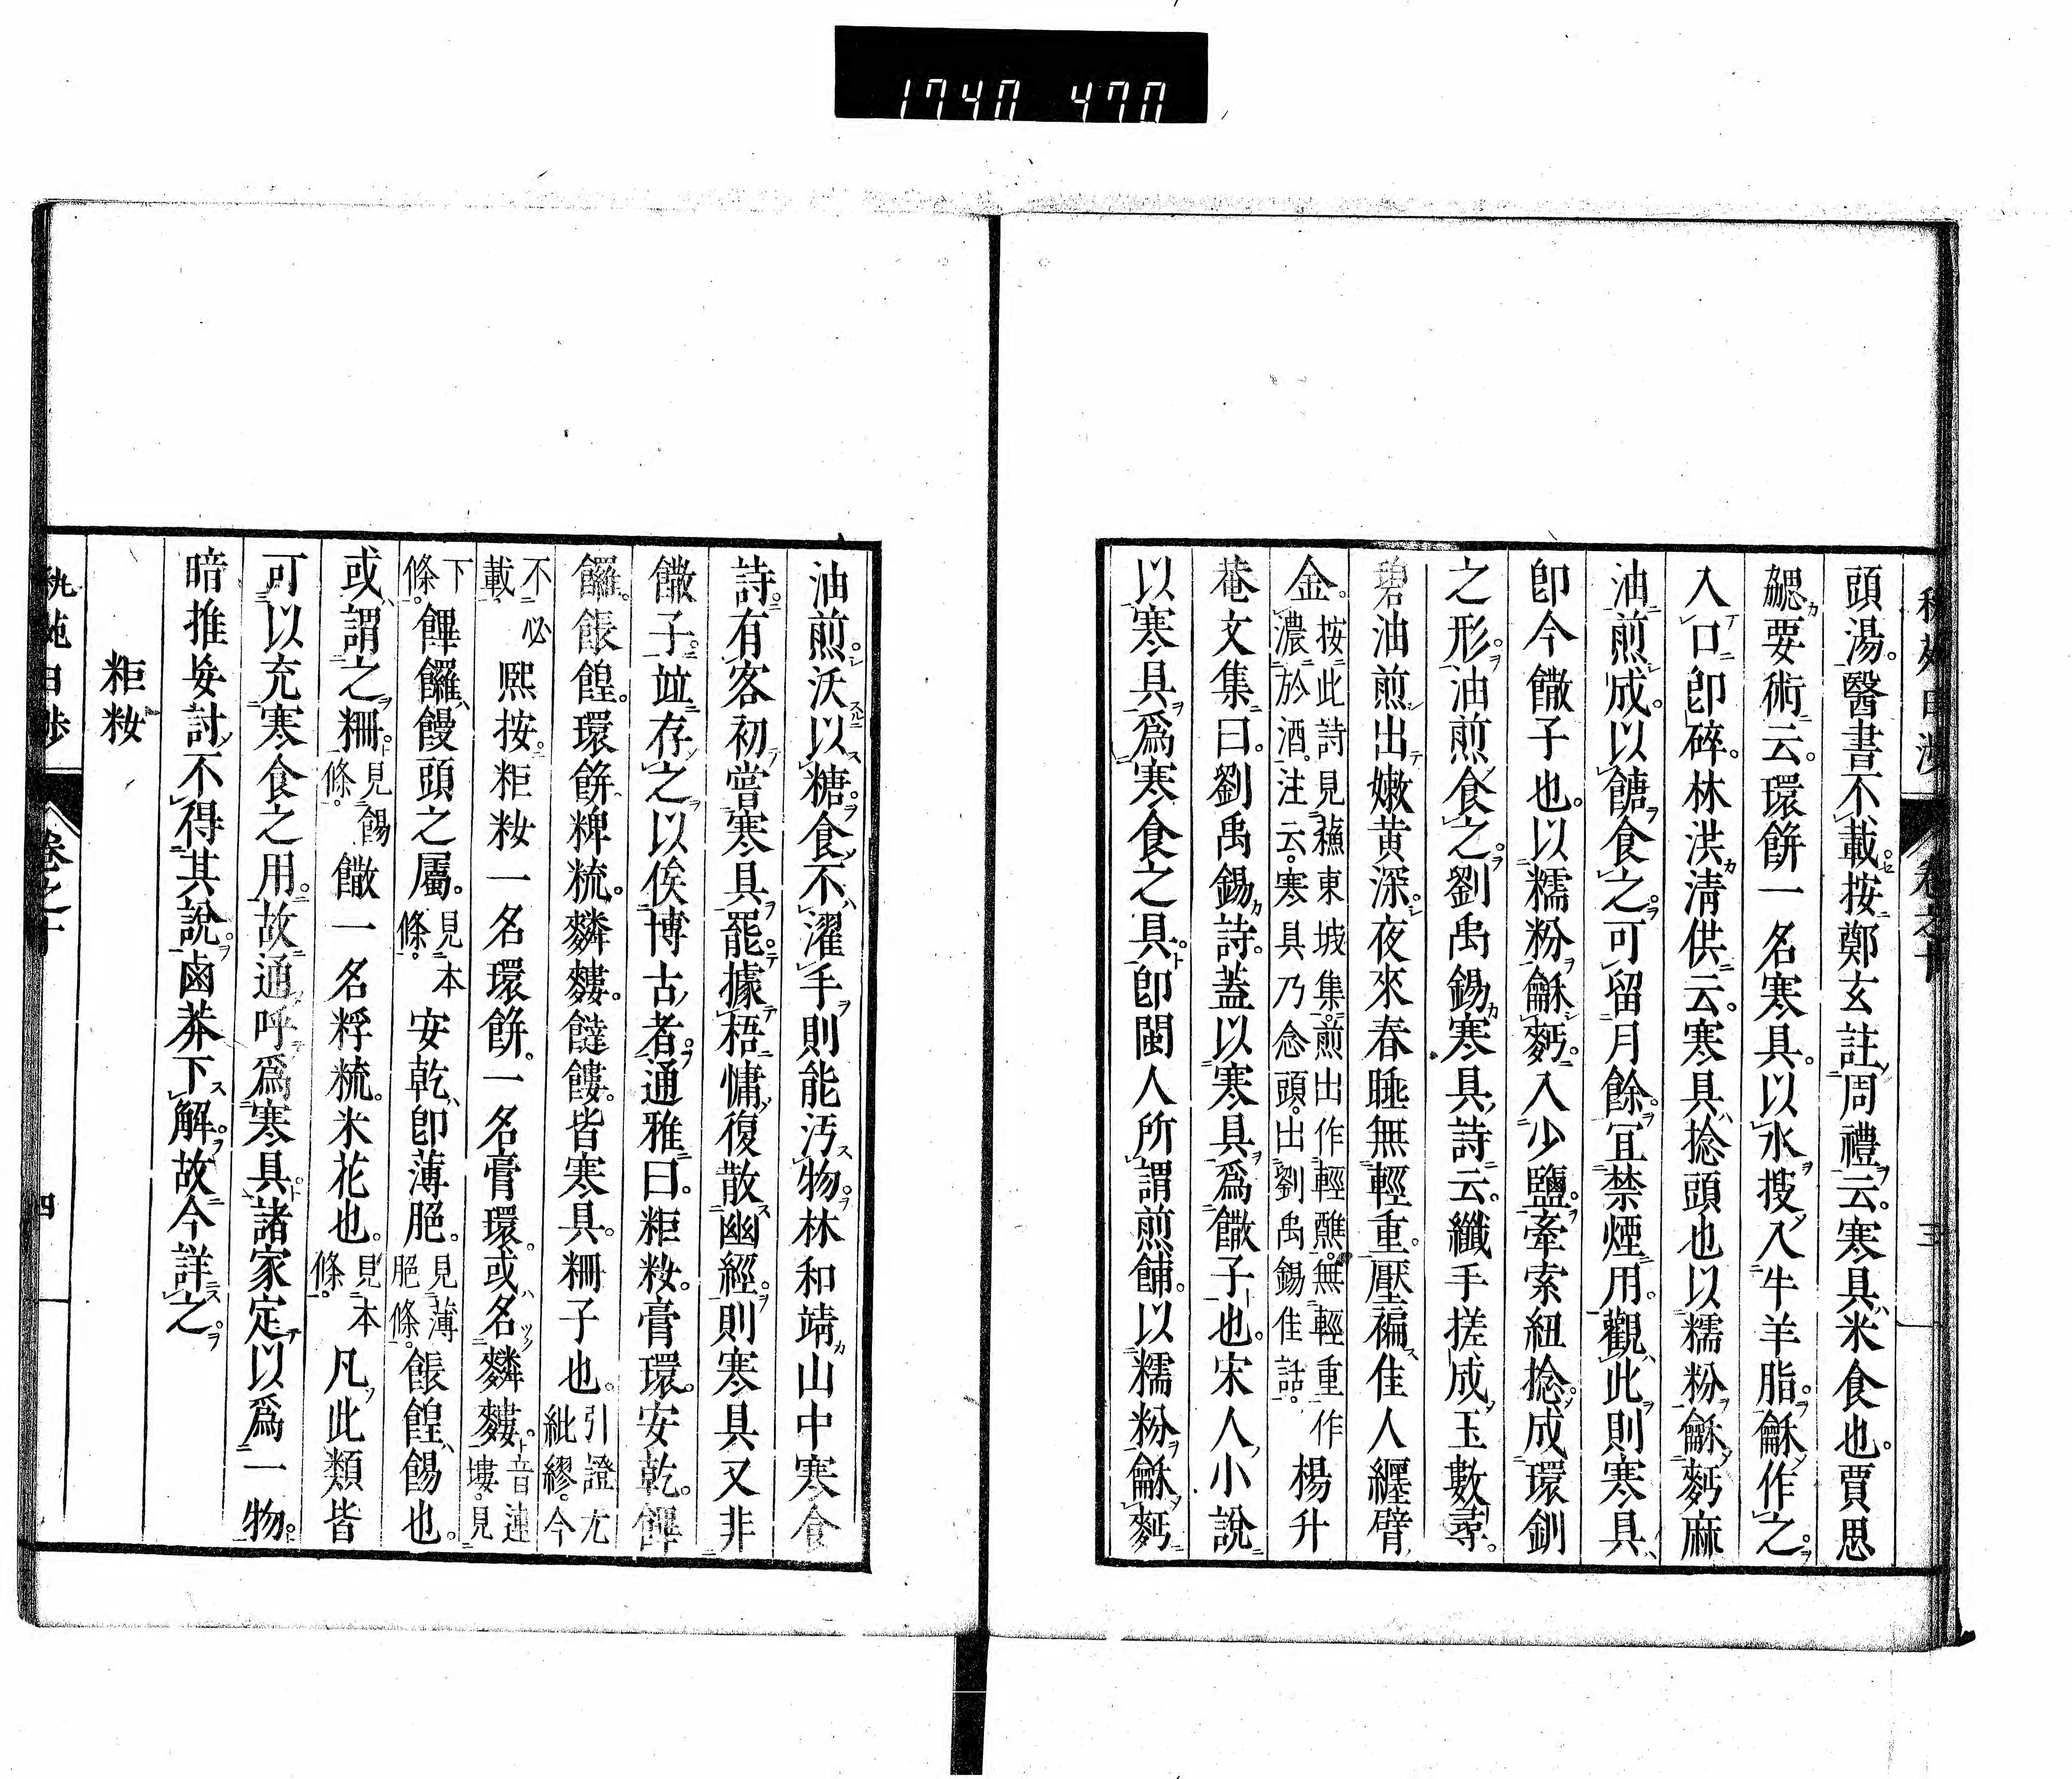 1740 470
頭湯醫書不載按鄭玄註周禮云寒具米食也賈思
勰要術云環餅一名寒具以水搜入牛羊脂龢作之
入口即碎林洪清供云寒具捻頭也以糯粉龢麪麻
油煎成以餹食之可留月餘宜禁煙用觀此則寒具
卽今饊子也以糯粉龢麪入少鹽牽索紐捻成環釧
之形油煎食之劉禹錫寒具詩云纖手搓成玉數尋
碧油煎出嫩黃深夜來春睡無輕重壓褊佳人纒臂
金按此詩見蘓東坡集煎出作輕蘸無輕重作濃於酒注云寒具乃念頭出劉禹錫佳話楊升
菴文集曰劉禹錫詩蓋以寒具爲饊子也宋人小說
以寒具爲寒食之具卽閩人所謂煎餔以糯粉龢麪
油煎沃以糖食不濯手則能汚物林和靖山中寒食
詩有客初嘗寒具罷據梧慵復散幽經則寒具又非
饊子竝存之以俟博古者通雅曰粔籹膏環安乾饆
饠餦餭環餅粰䊩䴶䴹䭞餿皆寒具粣子也引證尤紕繆今
不必載熙按粔籹一名環餅一名膏環或名䴶䴹音連塿見
下條饆饠饅頭之屬見本條安乾卽薄脃見薄脃條餦餭餳也
或謂之粣見餳條饊一名粰䊩米花也見本條凡此類皆
可以充寒食之用故通呼爲寒具諸家定以爲一物
暗推妄討不得其說鹵莽下解故今詳之
粔籹
卷之十
四
三